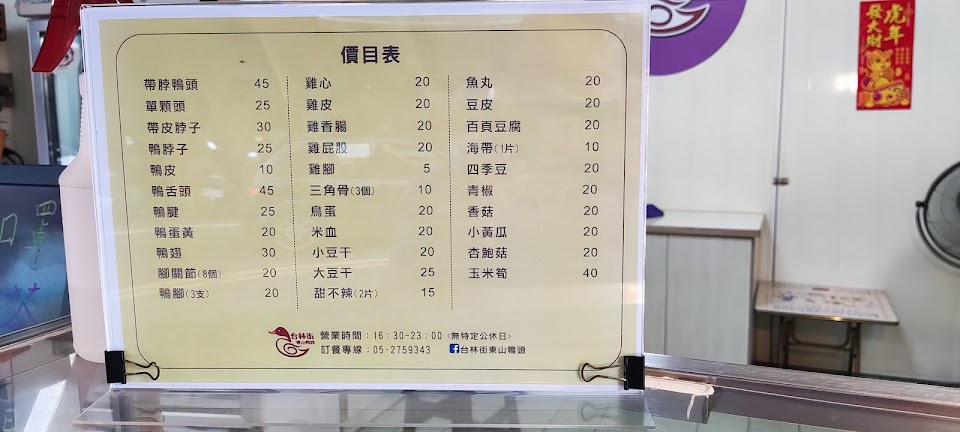 價目表
帶脖鴨頭 45
單顆頭 25
帶皮脖子 30
鴨脖子 25
鴨皮 10
鴨舌頭 45
鴨腱 25
鴨蛋黃 20
鴨翅 30
腳關節(8個) 20
鴨腳(3支) 20
雞心 20
雞皮 20
雞香腸 20
雞屁股 20
雞腳 5
三角骨(3個) 10
鳥蛋 20
米血 20
小豆干 20
大豆干 25
甜不辣(2片) 15
魚丸 20
豆皮 20
百頁豆腐 20
海帶(1片) 10
四季豆 20
青椒 20
香菇 20
小黃瓜 20
杏鮑菇 20
玉米筍 40
台林街
東山鴨頭
營業時間：16：30-23：00 <無特定公休日>
訂餐專線：05-2759343 f台林街東山鴨頭
虎年
發大財